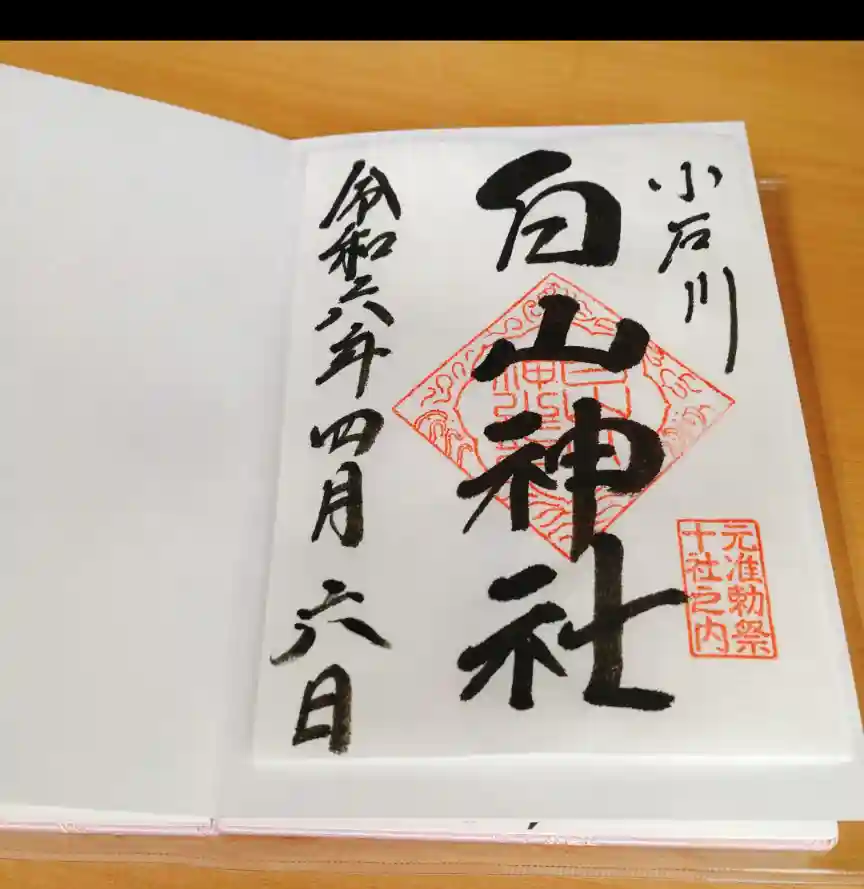 小石川
白山神社
元准勅祭
十社之内
令和六年四月六日